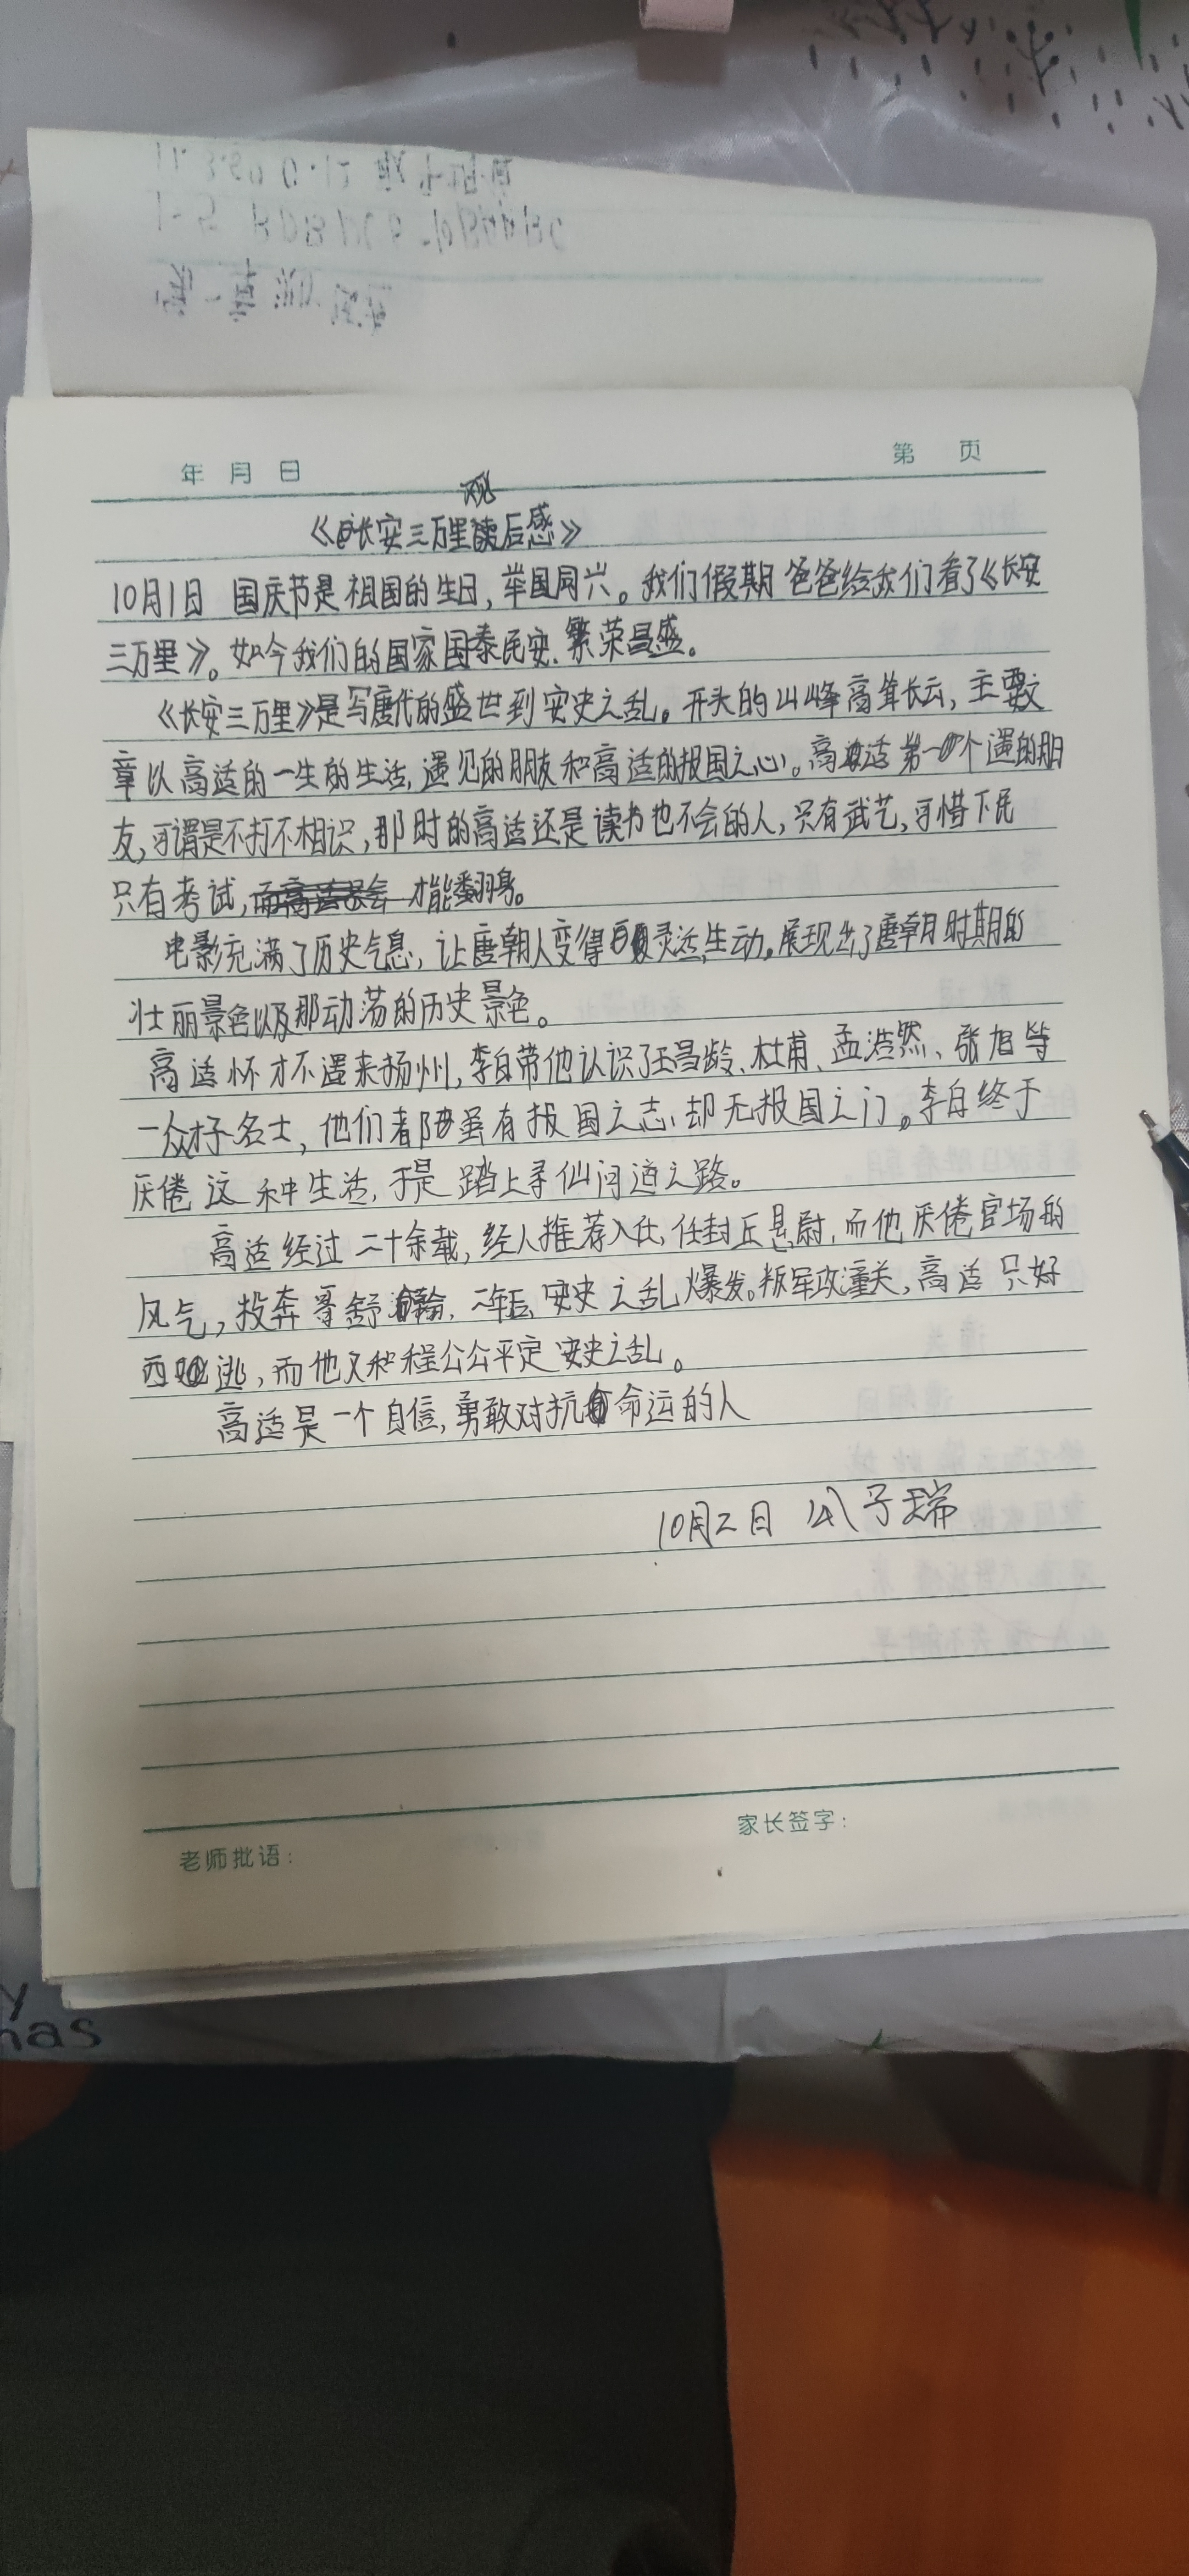 年 月 日
第 页
观
《长安三万里读后感》
10月1日 国庆节是祖国的生日,举国同兴。我们假期爸爸给我们看了《长安
三万里》。如今我们的国家国泰民安.繁荣昌盛。
《长安三万里》是写唐代的盛世到安史之乱。开头的山峰高耸长云,主要文
章以高适的一生的生活,遇见的朋友和高适的报国之心。高适第一个遇的朋
友,可谓是不打不相识,那时的高适还是读书也不会的人,只有武艺,可惜下民
只有考试,才能翻身。
电影充满了历史气息,让唐朝人变得灵活,生动。展现出了唐朝时期的
壮丽景色以及那动荡的历史景色。
高适怀才不遇来扬州,李白带他认识了王昌龄、杜甫、孟浩然、张旭等
一众才子名士,他们都虽有报国之志,却无报国之门。李白终于
厌倦这种生活,于是踏上寻仙问道之路。
高适经过二十余载,经人推荐入仕,任封丘县尉,而他厌倦官场的
风气,投奔哥舒翰,二年后,安史之乱爆发。叛军攻潼关,高适只好
西逃,而他又和程公公平定安史之乱。
高适是一个自信,勇敢对抗命运的人
10月2日 子瑞
老师批语:
家长签字:
y
has